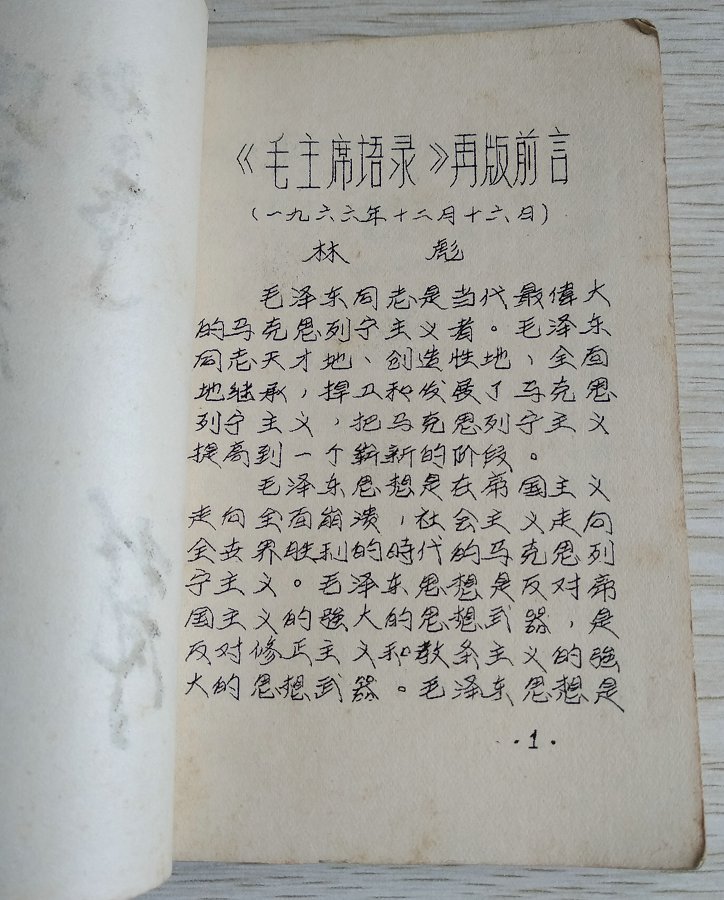 《毛主席语录》再版前言
(一九六六年十二月十六日)
林 彪
毛泽东同志是当代最偉大
的马克思列宁主义者。毛泽东
同志天才地、创造性地、全面
地继承,捍卫和发展了马克思
列宁主义,把马克思列宁主义
提高到一个崭新的阶段。
毛泽东思想是在帝国主义
走向全面崩溃,社会主义走向
全世界胜利的時代的马克思列
宁主义。毛泽东思想是反对帝
国主义的強大的思想武器,是
反对修正主义和教条主义的強
大的思想武器。毛泽东思想是
·1·